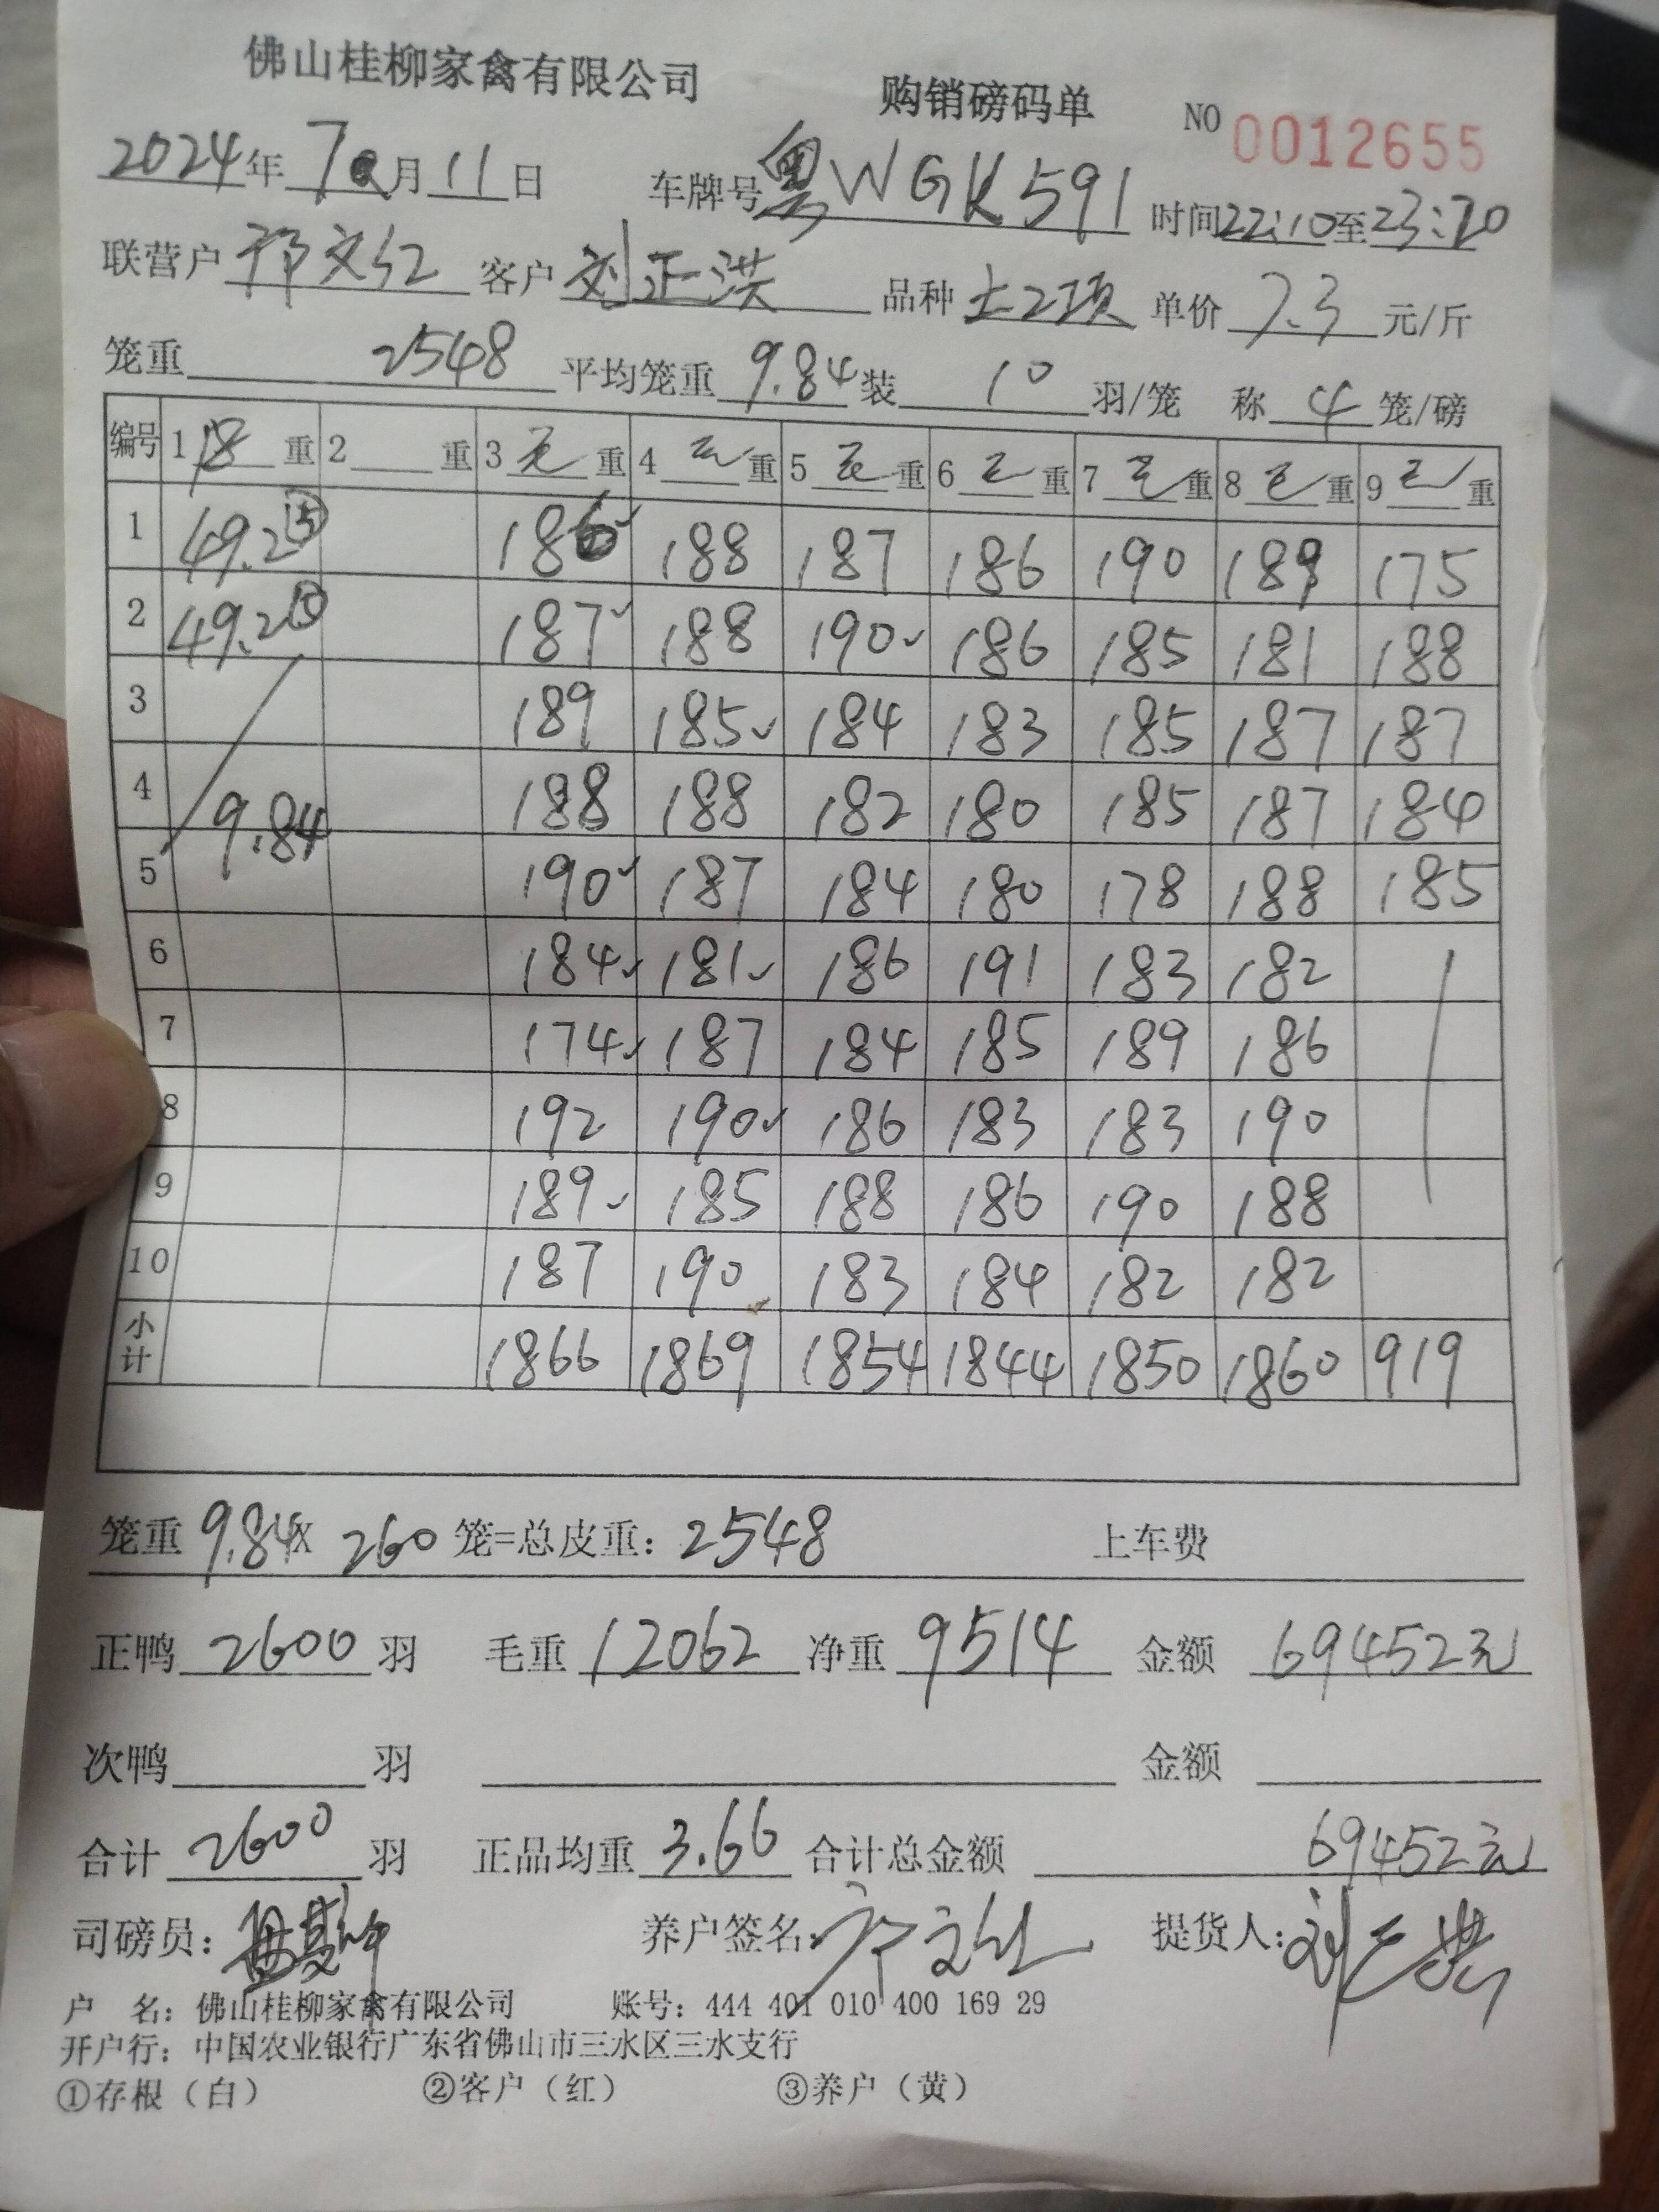 佛山桂柳家禽有限公司 购销磅码单 NO 0012655
2024年 7月 11日 车牌号 粤WGK591 时间 22:10 至 23:20
联营户 邓文红 客户 刘正洪 品种 土2项 单价 7.3 元/斤
笼重 2548 平均笼重 9.84 装 10 羽/笼 称 4 笼/磅
编号 1 重 2 重 3 毛 重 4 毛 重 5 毛 重 6 毛 重 7 毛 重 8 毛 重 9 毛 重
1 49.2⑤ 186 188 187 186 190 189 175
2 49.2⑤ 187 188 190 186 185 181 188
3 189 185 184 183 185 187 187
4 9.84 188 188 182 180 185 187 184
5 190 187 184 180 178 188 185
6 184 181 186 191 183 182
7 174 187 184 185 189 186
8 192 190 186 183 183 190
9 189 185 188 186 190 188
10 187 190 183 184 182 182
小计 1866 1869 1854 1844 1850 1860 919
笼重 9.84 X 260 笼=总皮重: 2548 上车费
正鸭 2600 羽 毛重 12062 净重 9514 金额 69452元
次鸭 羽 金额
合计 2600 羽 正品均重 3.66 合计总金额 69452元
司磅员: 养户签名: 邓文红 提货人: 刘正洪
户 名: 佛山桂柳家禽有限公司 账号: 444 401 010 400 169 29
开户行: 中国农业银行广东省佛山市三水区三水支行
①存根（白） ②客户（红） ③养户（黄）